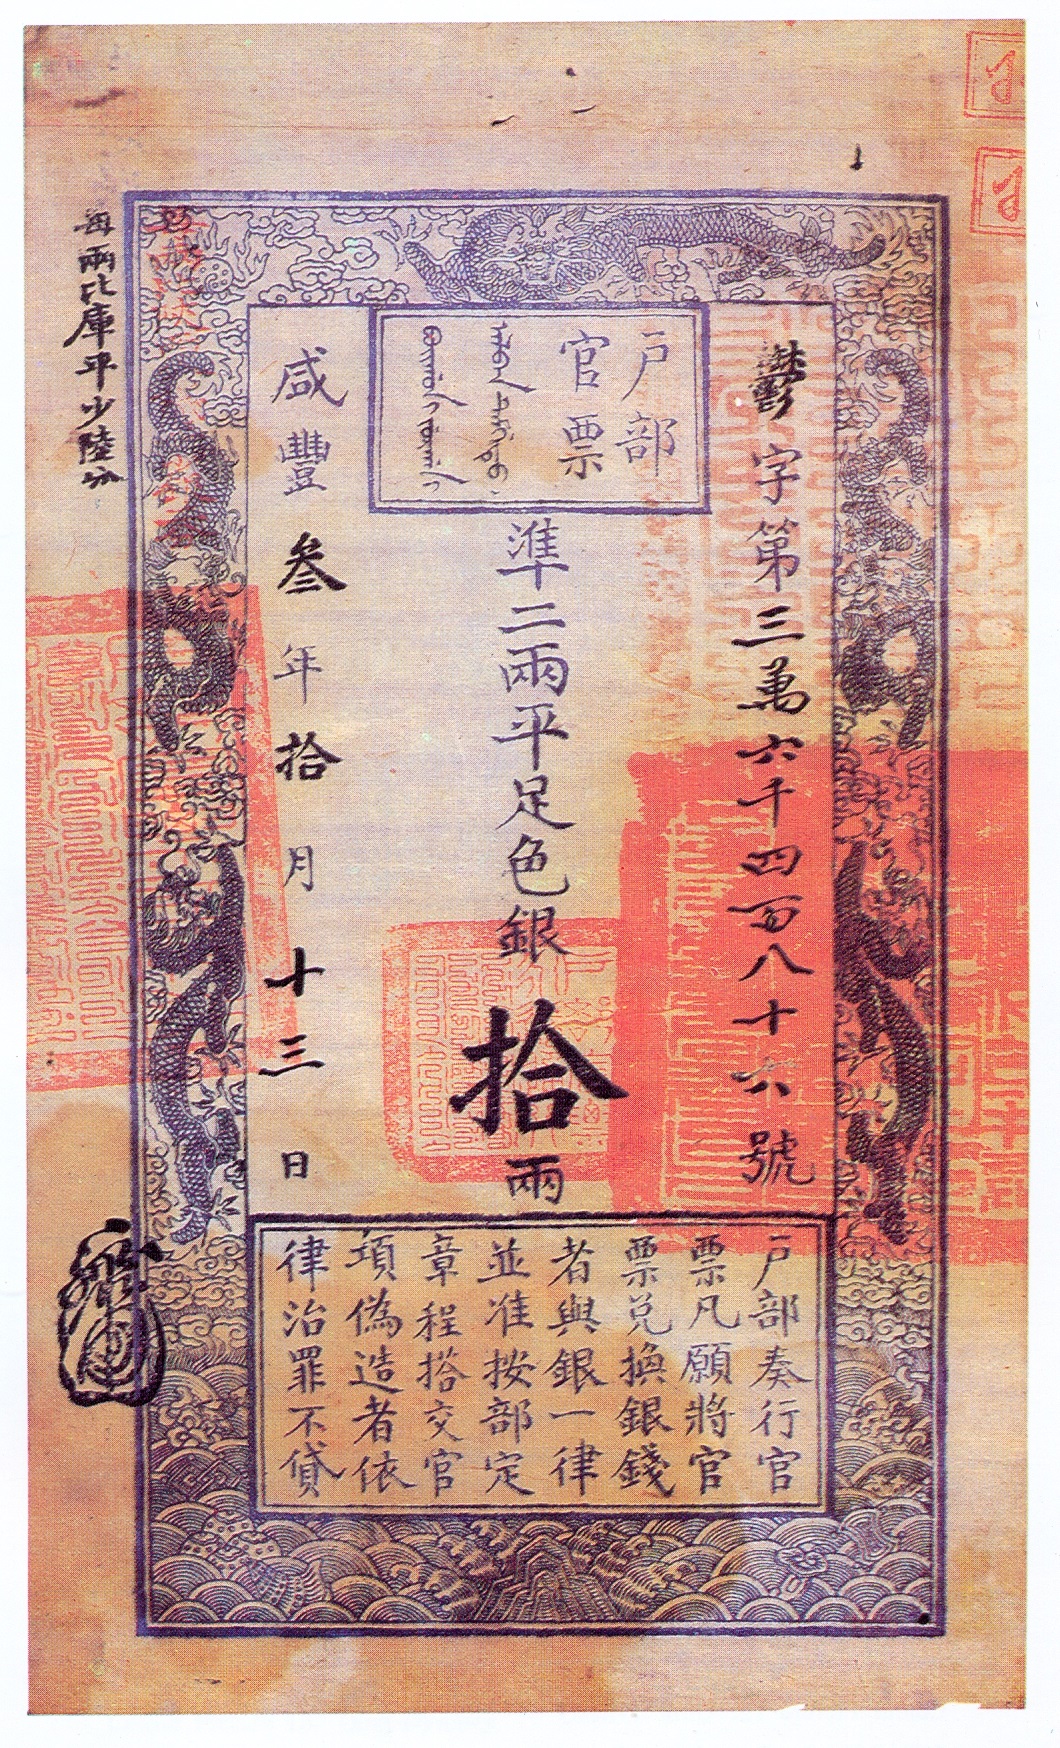 戶部
官票
鬱字第三萬六千四百八十六號
準二兩平足色銀拾兩
咸豐叁年拾月十三日
戶部奏行官
票凡願將官
票兌換銀錢
者與銀一律
並准按部定
章程搭交官
項偽造者依
律治罪不貸
每兩比庫平少陸分